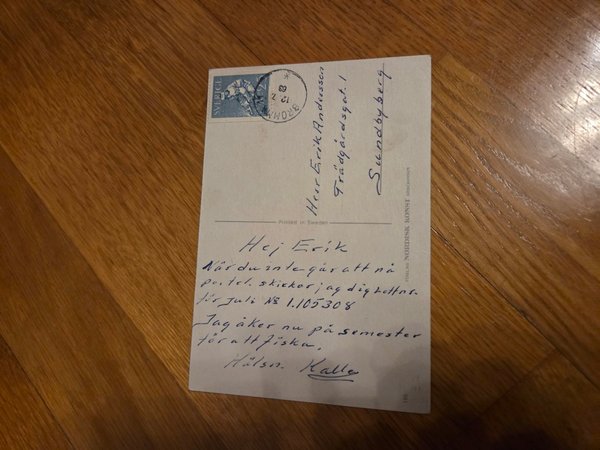 Hej Erik
När du inte går att nå
per tel. skickar jag dig Lottnr.
för Juli № 1.105308
Jag åker nu på semester
för att fiska.
Hälsn. Kalle
Herr Erik Andersson
Trädgårdsgat. 1
Sundbyberg
SVERIGE
BROMMA
12 7
63
PRINTED IN SWEDEN
FÖRLAG NORDISK KONST